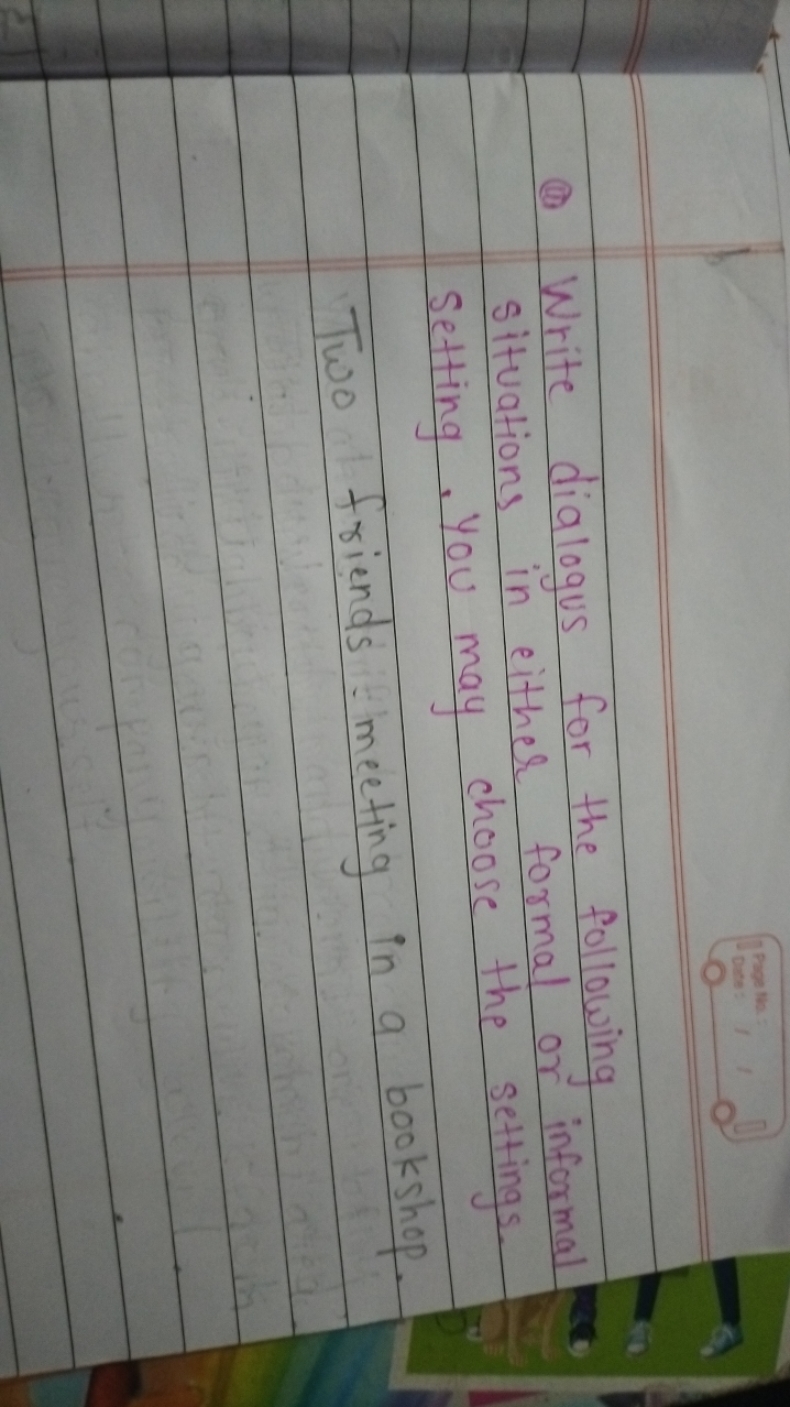 Page No. :
Date : / /
Write dialogus for the following
situations in either formal or informal
setting. You may choose the settings.
Two friends meeting in a bookshop.